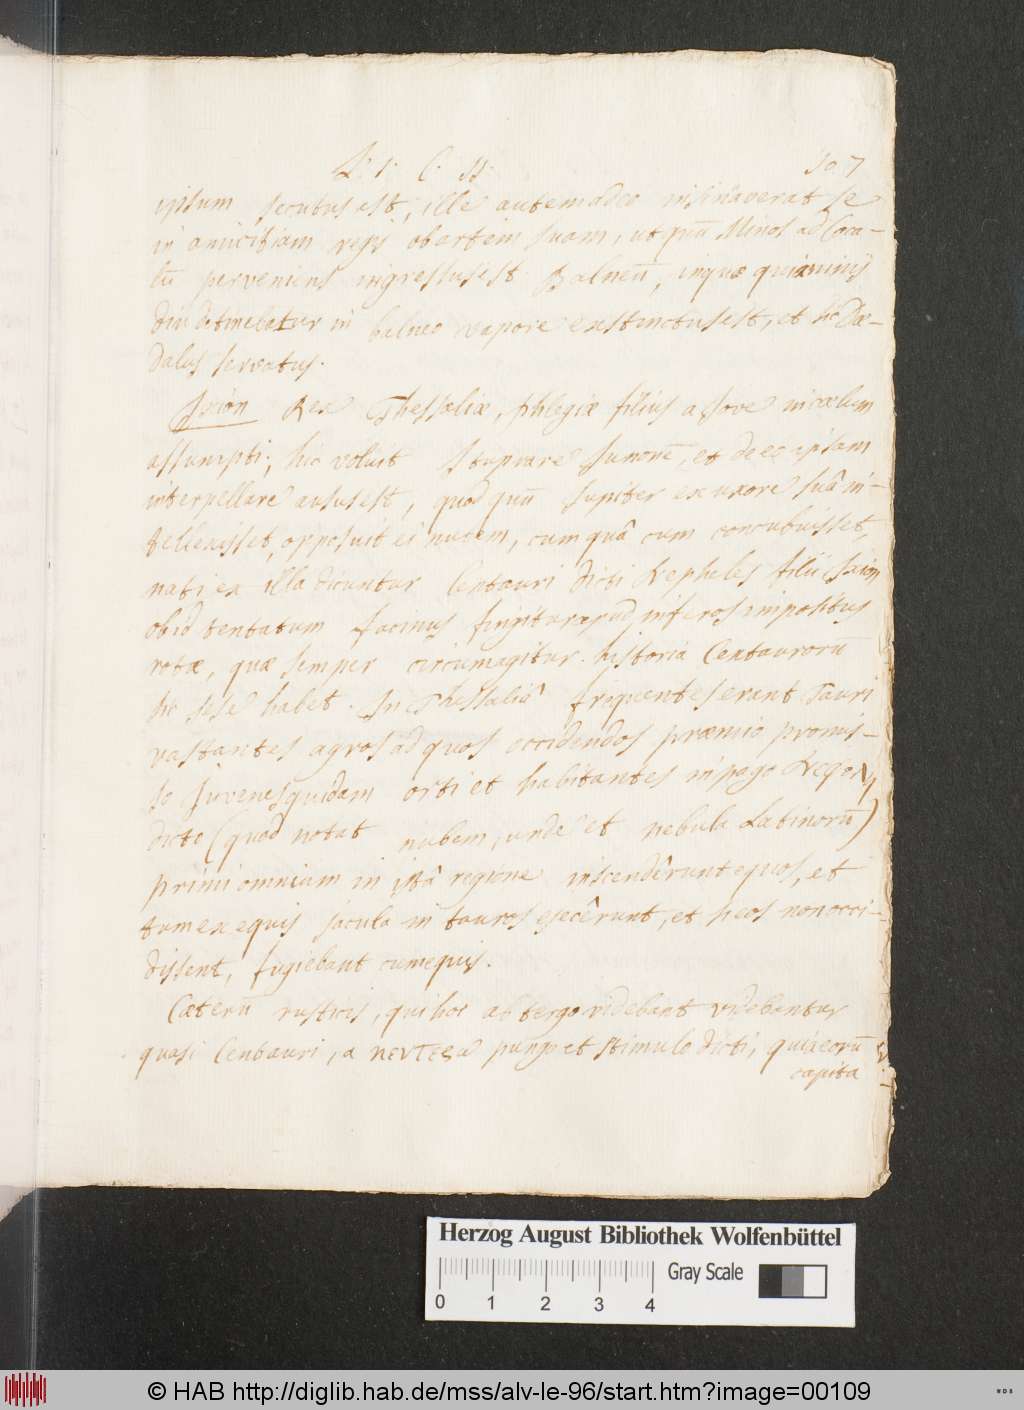 L. 1. C. 11. 107
ipsum secutus est, ille autem adeo insinaverat se
in amicitiam regis ob artem suam, ut quū Minos ad Coca-
lū perveniens ingressus est Balneū, in quo quia nimis
diu detinebatur in balneo vapore exstinctus est, et sic Dæ-
dalus servatus.
Ixion Rex Thessaliæ, phlegiæ filius a Jove in cælum
assumpti; hic voluit stuprare Junonē, et de eo ipsam
interpellare ausus est, quod quū Jupiter ex uxore suâ in-
tellexisset, opposuit ei nubem, cum quâ cum concubuisset,
nati ex illa dicuntur Centauri dicti Nepheles filii Ixion
ob id tentatum facinus fingitur apud inferos impositus
rotæ, quæ semper circumagitur. historia Centaurorū
sic sese habet. In Thessaliâ frequentes erant Tauri
vastantes agros ad quos occidendos præmio promis-
so Juvenes quidam orti et habitantes in pago
dicto (quod notat nubem, unde et nebula Latinorū)
primi omnium in istâ regione inscendêrunt equos, et
tum ex equis jacula in tauros ejecêrunt, et si eos non occi-
dissent, fugiebant cum equis.
Cæterū rustici, qui hos ab tergo videbant videbantur
quasi Centauri, a pungo et stimulo dicti, quia eorū
capita
Herzog August Bibliothek Wolfenbüttel
Gray Scale
0 1 2 3 4
© HAB http://diglib.hab.de/mss/alv-le-96/start.htm?image=00109